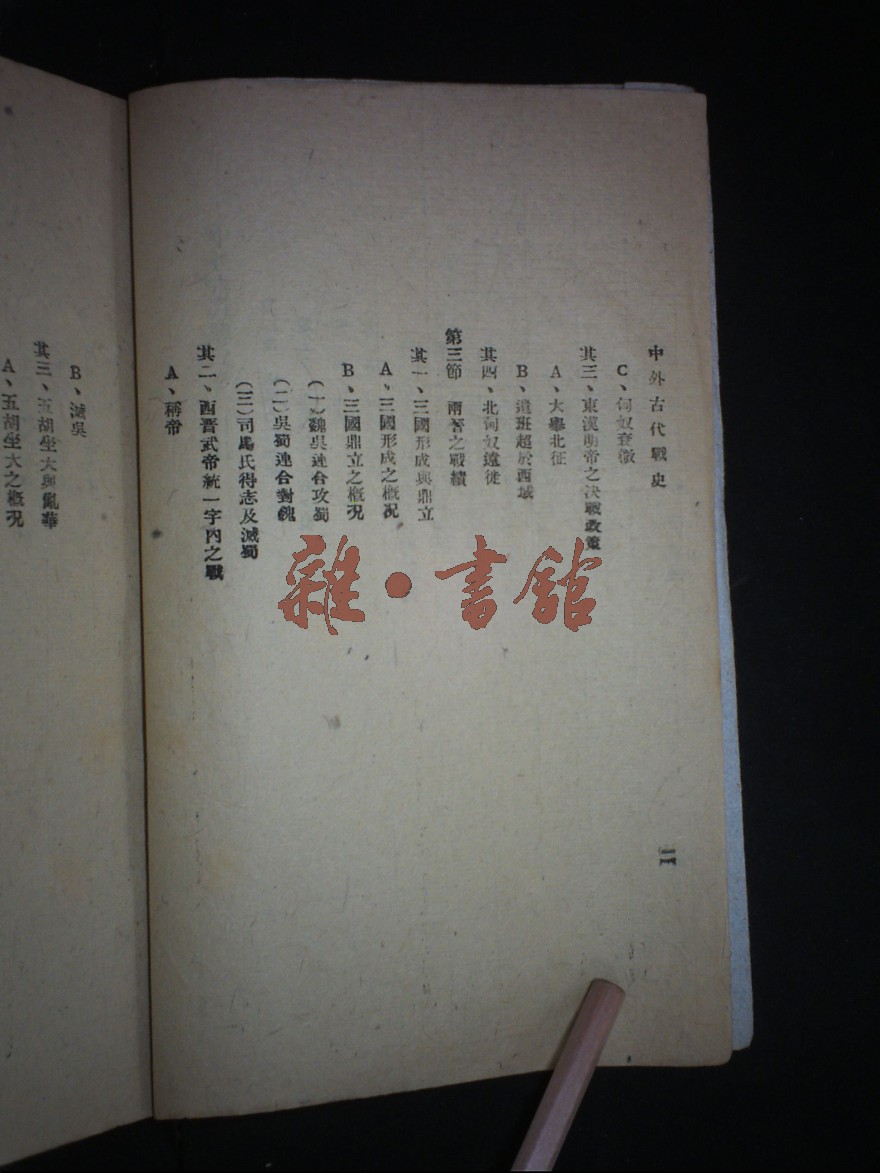 中外古代戰史
C、匈奴奪徵
其三、東漢明帝之決戰政策
A、大舉北征
B、遣班超於西域
其四、北匈奴遠徙
第三節 兩晉之戰績
其一、三國形成與鼎立
A、三國形成之概況
B、三國鼎立之概況
(一)魏吳連合攻蜀
(二)吳蜀連合對魏
(三)司馬氏得志及滅蜀
其二、西晉武帝統一字內之戰
A、稱帝
B、滅吳
其三、五胡坐大與亂華
A、五胡坐大之概況
二
雜·書館